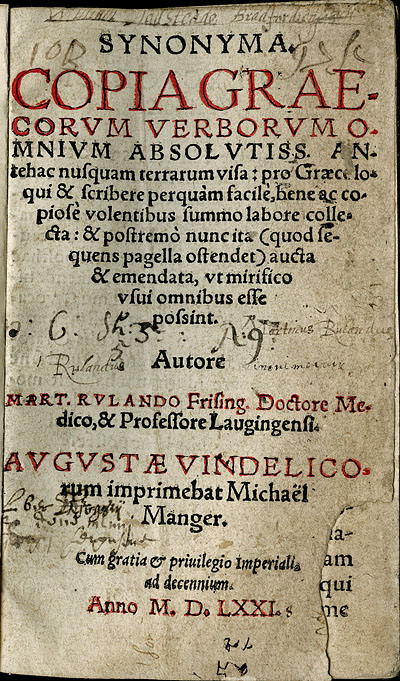 SYNONYMA.
COPIA GRAE-
CORVM VERBORVM O-
MNIVM ABSOLVTISS. AN-
tehac nusquam terrarum visa: pro Græce lo-
qui & scribere perquàm facilè, bene ac co-
piosè volentibus summo labore colle-
cta: & postremò nunc ita (quod se-
quens pagella ostendet) aucta
& emendata, vt mirifico
vsui omnibus esse
possint.
Rulandus
Autore
MART. RVLANDO Frising. Doctore Me-
dico, & Professore Laugingensi.
AVGVSTÆ VINDELICO-
rum imprimebat Michaël
Manger.
Cum gratia & priuilegio Imperiali,
ad decennium.
Anno M. D. LXXI.
am
qui
me